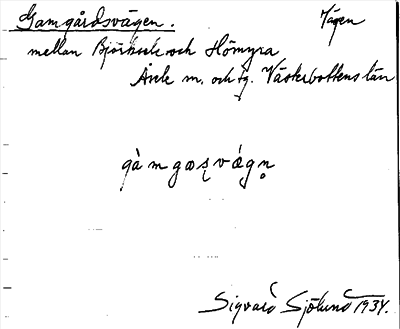 Gamgårdsvägen. Vägen
mellan Björksele och Hömyra
Åsele m. och tg. Västerbottens län
gàmgaʂvǽgn̥
Sigvard Sjölund 1934.